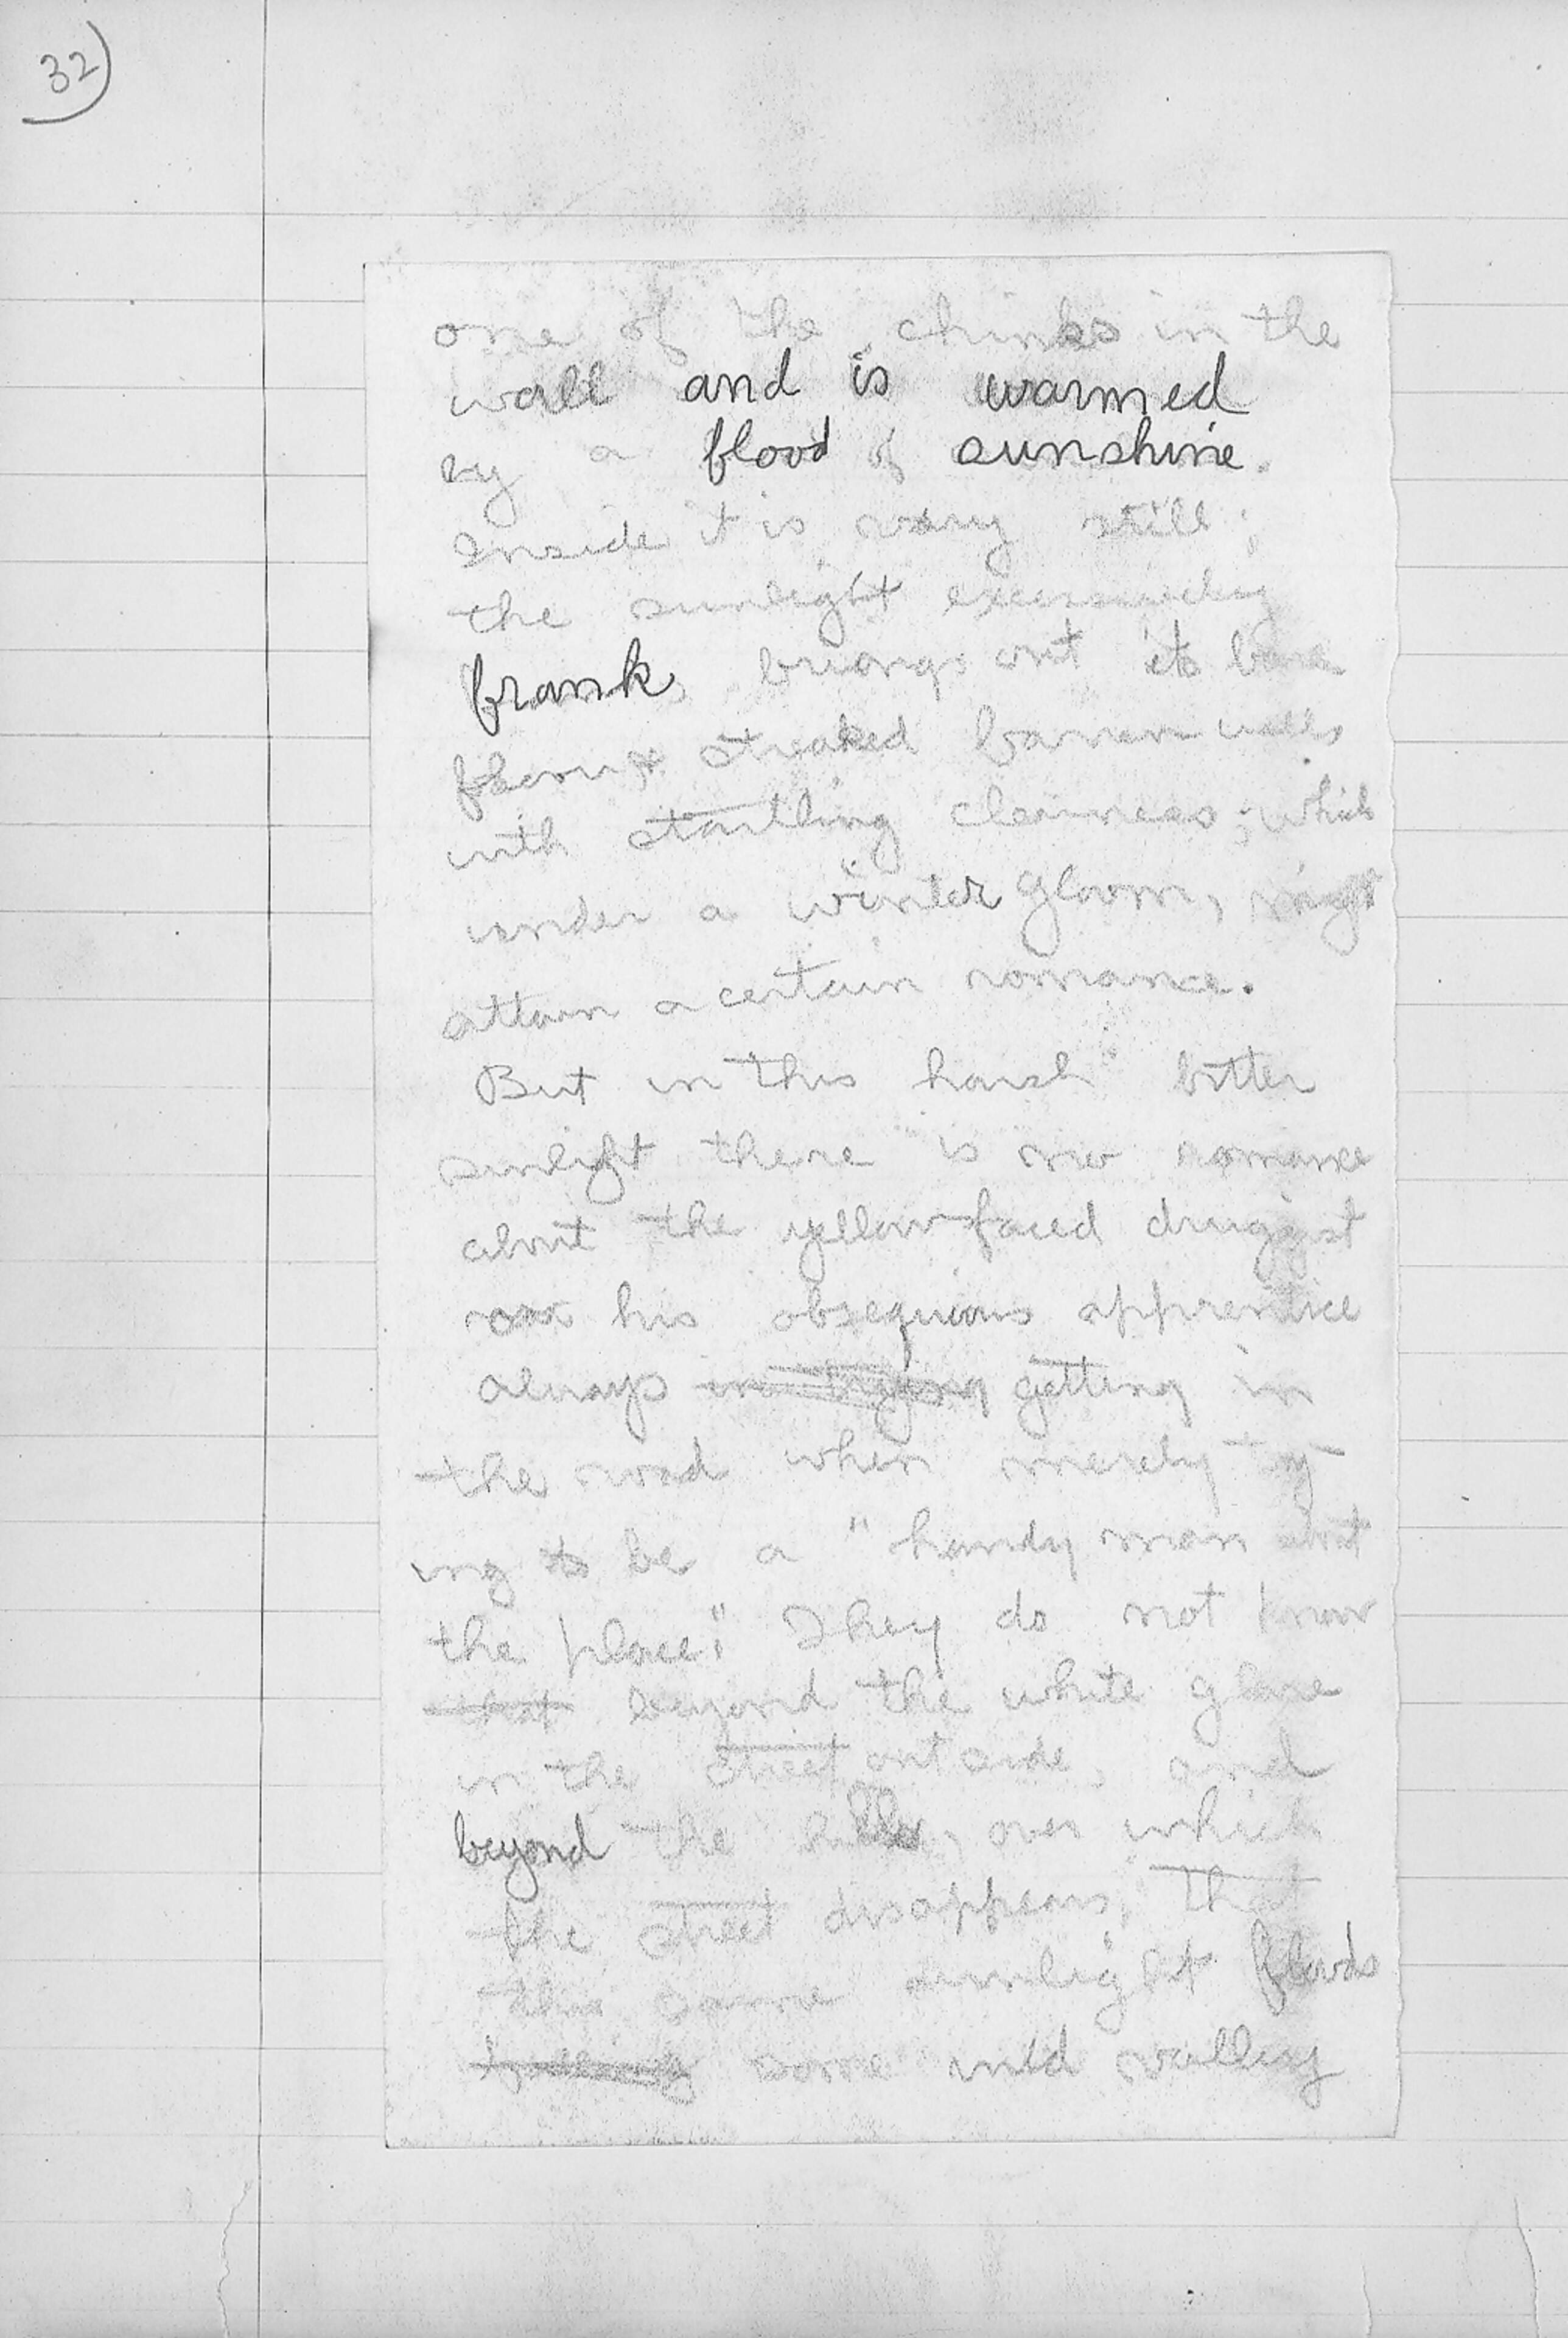 32)
one of the chinks in the
wall and is warmed
by a flood of sunshine.
Inside it is very still;
the sunlight excessively
frank, brings out its bare
streaked barren walls
with startling clearness; which
under a winter gloom, might
attain a certain romance.
But in this harsh bitter
sunlight there is no romance
about the yellow faced druggist
nor his obsequious apprentice
always in trying getting in
the road when merely try-
ing to be a "handy man about
the place." They do not know
that beyond the white glare
in the street outside, and
beyond the hills, over which
the street disappears, that
this same sunlight floods
some wild valley